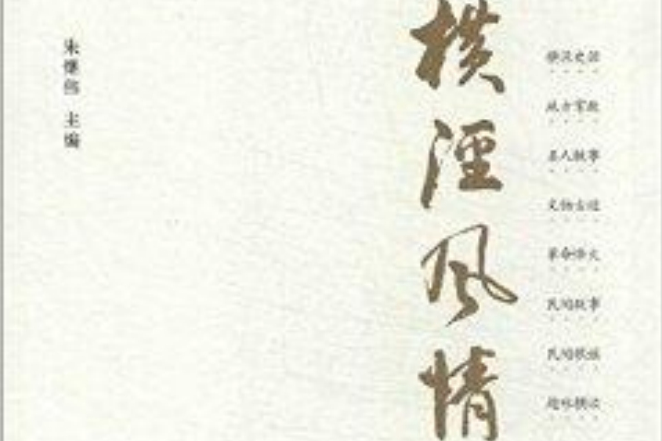 横泾风情
朱继伟 主编
横泾史话
地方掌故
名人轶事
文物古迹
革命烽火
民间故事
民间歌谣
趣味横泾